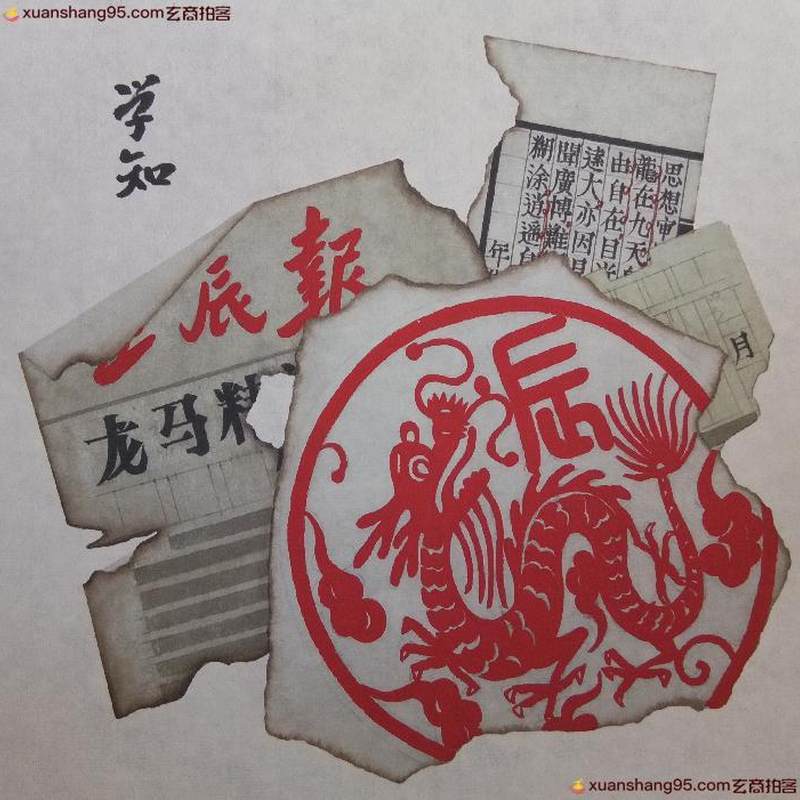 xuanshang95.com玄商拍客
学知
思想
龍在九天
由自在目光
逺大亦因見
聞廣博難
糊涂逍遥自
年
月
辰報
龙马精
辰
xuanshang95.com玄商拍客